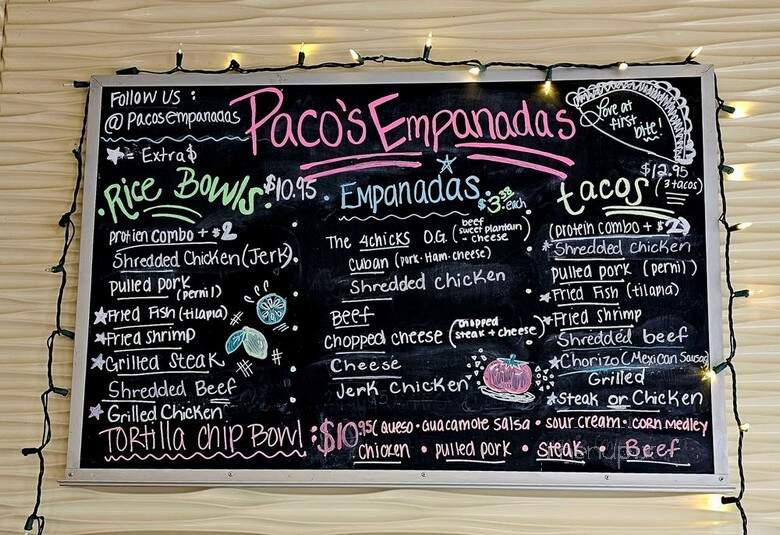 Follow us :
@ Pacosempanadas
★= Extra$
Paco's Empanadas
Love at
first
bite!
Rice Bowls $10.95
protien combo + $2
Shredded Chicken (Jerk)
pulled pork
(pernil)
★Fried Fish (tilapia)
★Fried shrimp
★Grilled Steak
Shredded Beef
★Grilled Chicken
Empanadas $3.58 each
The 4chicks O.G. (beef
sweet plantain
- cheese)
Cuban (pork-Ham-cheese)
Shredded chicken
Beef
chopped cheese (chopped
steak + cheese)
Cheese
Jerk Chicken
$12.95
tacos (3 tacos)
(protein combo + $2)
★Shredded chicken
pulled pork (pernil)
★Fried Fish (tilapia)
★Fried shrimp
Shredded beef
★Chorizo (Mexican Sausage
Grilled
★Steak or Chicken
Tortilla chip Bowl : $10.95 (queso • guacamole salsa • sour cream • corn medley
chicken • pulled pork • steak • Beef